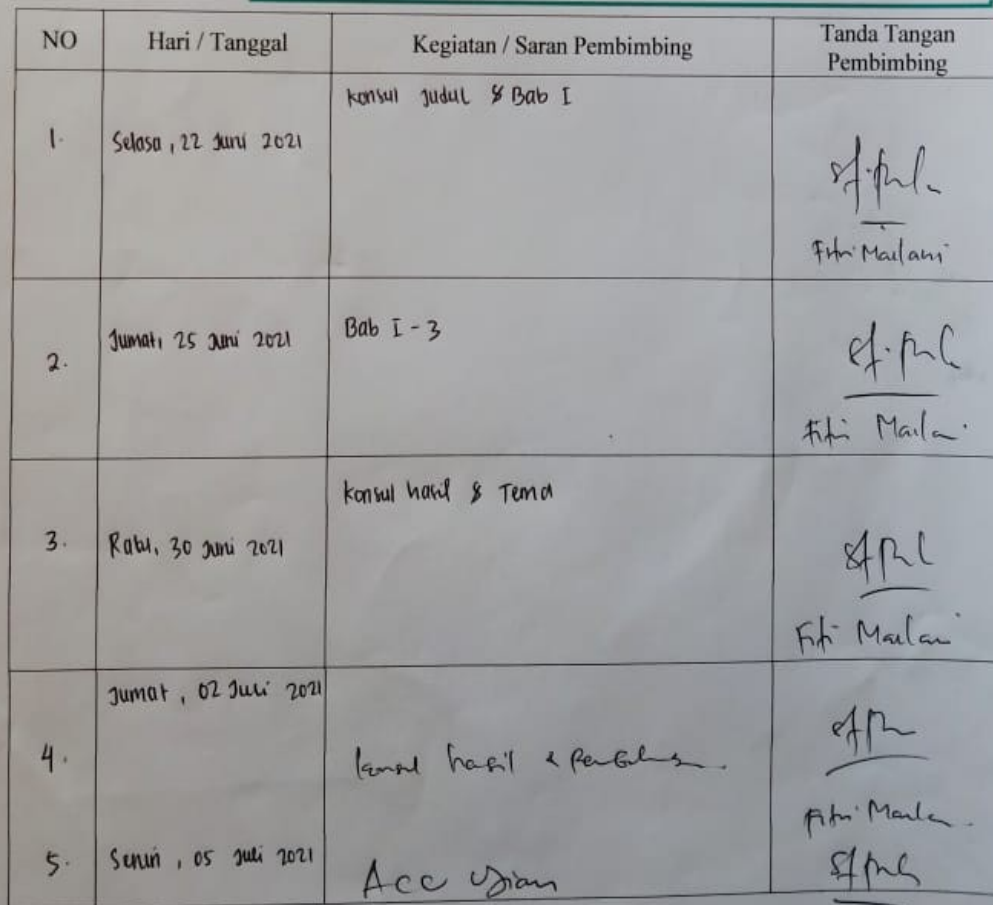 NO Hari / Tanggal Kegiatan / Saran Pembimbing Tanda Tangan Pembimbing
1. Selasa, 22 Juni 2021 Konsul Judul & Bab I
Fitri Mailani
2. Jumat, 25 Juni 2021 Bab I - 3
Fitri Mailani
3. Rabu, 30 Juni 2021 Konsul hasil & Tema
Fitri Mailani
4. Jumat, 02 Juli 2021 konsul hasil &
Fitri Mailani
5. Senin, 05 Juli 2021 Acc Ujian